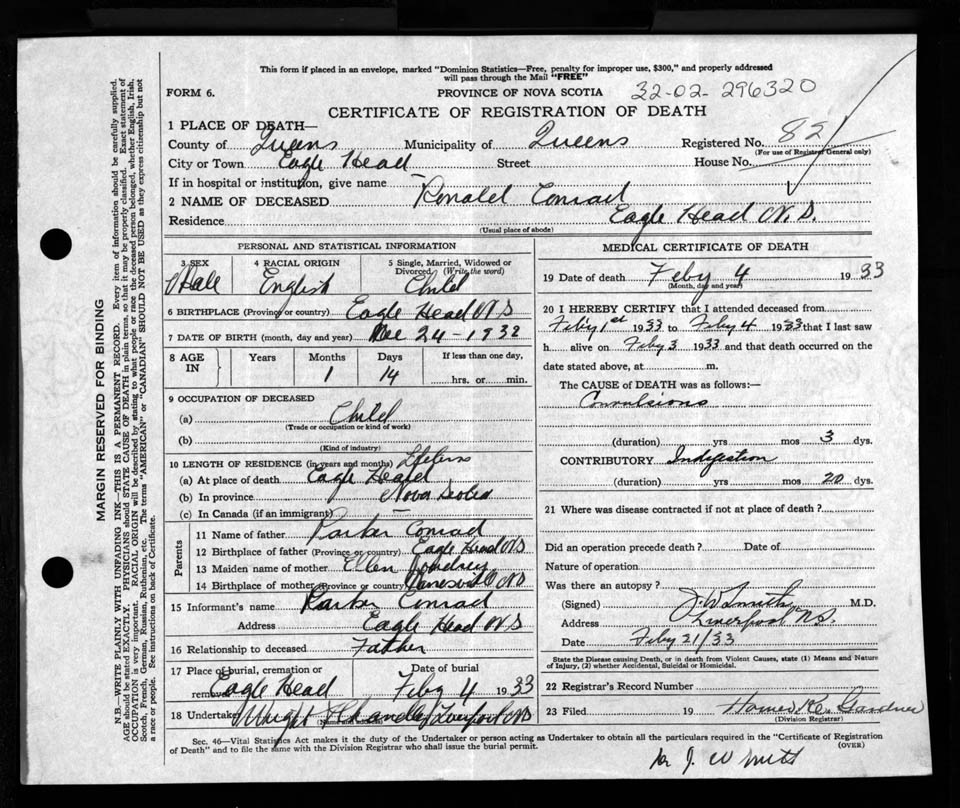 This form if placed in an envelope, marked "Dominion Statistics—Free, penalty for improper use, $300," and properly addressed
will pass through the Mail "FREE"
FORM 6.
PROVINCE OF NOVA SCOTIA
32-02-296320
CERTIFICATE OF REGISTRATION OF DEATH
1 PLACE OF DEATH—
County of Queens Municipality of Queens Registered No. 821
(For use of Registrar General only)
City or Town Eagle Head Street House No.
If in hospital or institution, give name
2 NAME OF DECEASED Ronald Conrad
Residence Eagle Head N.S.
(Usual place of abode)
PERSONAL AND STATISTICAL INFORMATION
3 SEX Male
4 RACIAL ORIGIN English
5 Single, Married, Widowed or Divorced (Write the word) Child
6 BIRTHPLACE (Province or country) Eagle Head N S
7 DATE OF BIRTH (month, day and year) Dec 24-1932
8 AGE IN Years Months 1 Days 14 If less than one day, hrs. or min.
9 OCCUPATION OF DECEASED
(a) Child
(Trade or occupation or kind of work)
(b)
(Kind of industry)
10 LENGTH OF RESIDENCE (in years and months) Lifetime
(a) At place of death Eagle Head
(b) In province Nova Scotia
(c) In Canada (if an immigrant) —
Parents
11 Name of father Parker Conrad
12 Birthplace of father (Province or country) Eagle Head N S
13 Maiden name of mother Ellen
14 Birthplace of mother (Province or country) N S
15 Informant's name Parker Conrad
Address Eagle Head N S
16 Relationship to deceased Father
17 Place of burial, cremation or removal Eagle Head Date of burial Feby 4 1933
18 Undertaker Wright Chandler Liverpool N S
MEDICAL CERTIFICATE OF DEATH
19 Date of death Feby 4 1933
(Month, day and year)
20 I HEREBY CERTIFY that I attended deceased from
Feby 1st 1933 to Feby 4 1933 that I last saw
h alive on Feby 3 1933 and that death occurred on the
date stated above, at m.
The CAUSE of DEATH was as follows:—
Convulsions
(duration) yrs mos 3 dys.
CONTRIBUTORY Indigestion
(duration) yrs mos 20 dys.
21 Where was disease contracted if not at place of death?
Did an operation precede death? Date of
Nature of operation
Was there an autopsy?
(Signed) J W Smith M.D.
Address Liverpool N.S.
Date Feby 21/33
State the Disease causing Death, or in death from Violent Causes, state (1) Means and Nature
of Injury, (2) whether Accidental, Suicidal or Homicidal.
22 Registrar's Record Number
23 Filed 19 Homer Gardner
(Division Registrar)
Sec. 46—Vital Statistics Act makes it the duty of the Undertaker or person acting as Undertaker to obtain all the particulars required in the "Certificate of Registration
of Death" and to file the same with the Division Registrar who shall issue the burial permit.
(OVER)
J. W Smith
MARGIN RESERVED FOR BINDING
N.B. WRITE PLAINLY WITH UNFADING INK—THIS IS A PERMANENT RECORD. Every item of information should be carefully supplied.
AGE should be stated EXACTLY. PHYSICIANS should STATE CAUSE OF DEATH in plain terms, so that it may be properly classified. Exact statement of
OCCUPATION is very important. RACIAL ORIGIN will be described by stating to what people or race the deceased person belonged, whether English, Irish,
Scotch, French, German, Russian, Ruthenian, etc. The terms "AMERICAN" or "CANADIAN" SHOULD NOT BE USED as they express citizenship but not
a race or people. See instructions on back of Certificate.